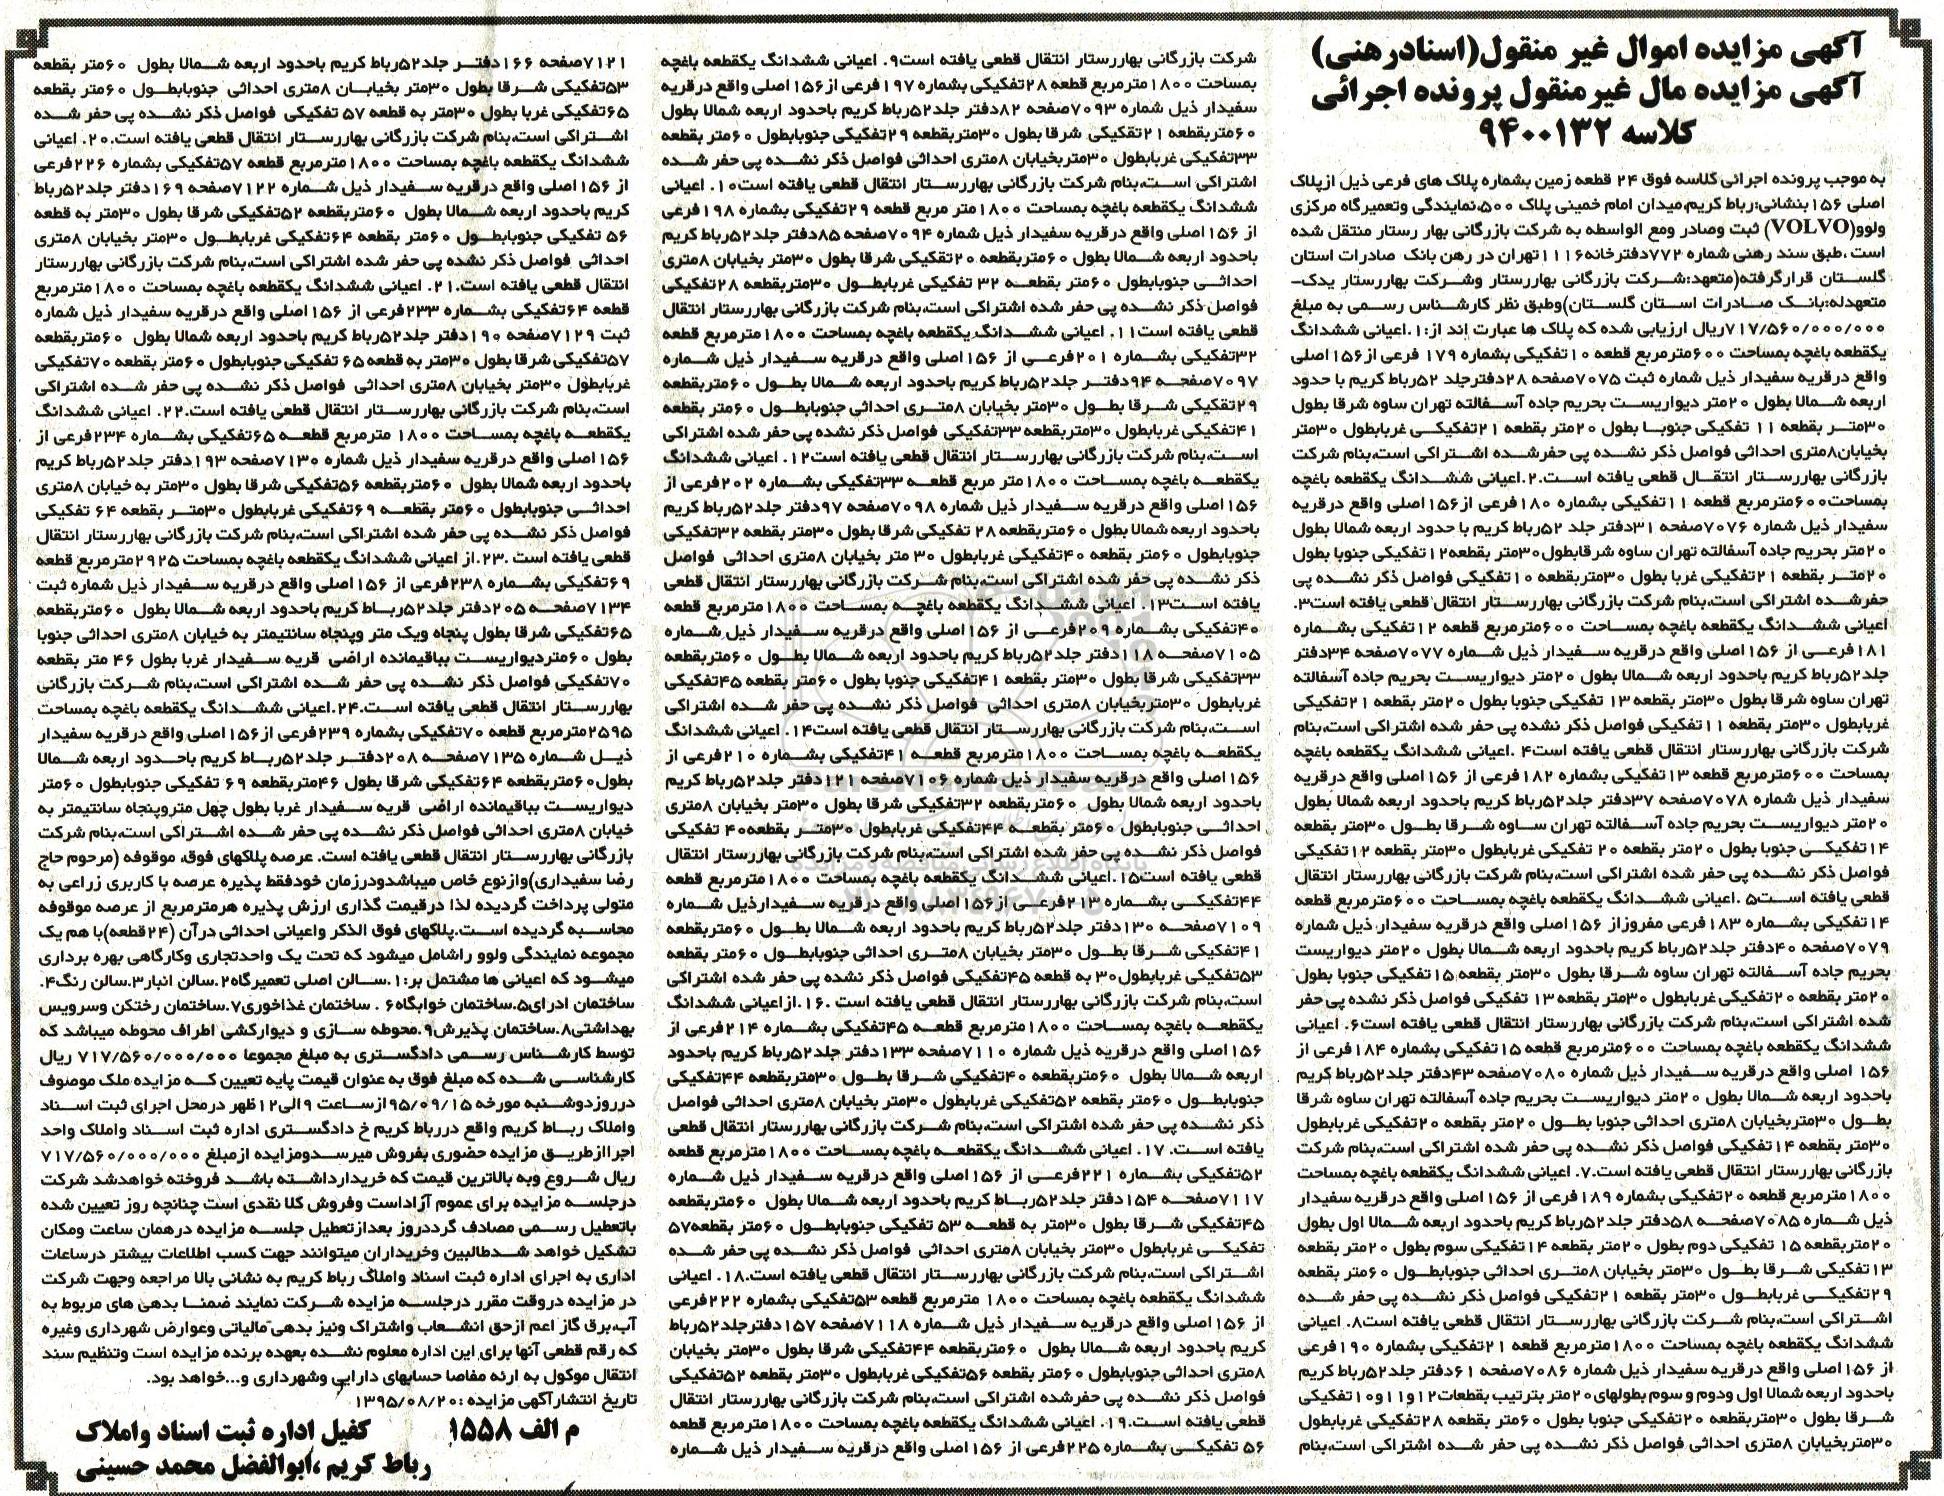 آگهی مزایده اموال غیر منقول(اسنادرهنی)
آگهی مزایده مال غیرمنقول پرونده اجرائی
کلاسه ۹۴۰۰۱۳۲
به موجب پرونده اجرائی کلاسه فوق ۲۴ قطعه زمین بشماره پلاک های فرعی ذیل ازپلاک
اصلی ۱۵۶بنشانی:رباط کریم،میدان امام خمینی پلاک ۵۰۰،نمایندگی وتعمیرگاه مرکزی
ولوو(VOLVO) ثبت وصادر ومع الواسطه به شرکت بازرگانی بهار رستار منتقل شده
است ،طبق سند رهنی شماره ۷۷۲دفترخانه۱۱۱۶تهران در رهن بانک صادرات استان
گلستان قرارگرفته(متعهد:شرکت بازرگانی بهاررستار وشرکت بهاررستار یدک-
متعهدله:بانک صادرات استان گلستان)وطبق نظر کارشناس رسمی به مبلغ
۷۱۷/۵۶۰/۰۰۰/۰۰۰ریال ارزیابی شده که پلاک ها عبارت اند از:۱.اعیانی ششدانگ
یکقطعه باغچه بمساحت ۶۰۰مترمربع قطعه ۱۰تفکیکی بشماره ۱۷۹ فرعی از۱۵۶اصلی
واقع درقریه سفیدار ذیل شماره ثبت ۷۰۷۵صفحه ۲۸دفترجلد ۵۲رباط کریم با حدود
اربعه شمالا بطول ۲۰متر دیواریست بحریم جاده آسفالته تهران ساوه شرقا بطول
۳۰متر بقطعه ۱۱ تفکیکی جنوبا بطول ۲۰متر بقطعه ۲۱تفکیکی غربابطول ۳۰متر
بخیابان۸متری احداثی فواصل ذکر نشده پی حفرشده اشتراکی است،بنام شرکت
بازرگانی بهاررستار انتقال قطعی یافته است.۲.اعیانی ششدانگ یکقطعه باغچه
بمساحت۶۰۰مترمربع قطعه ۱۱تفکیکی بشماره ۱۸۰ فرعی از۱۵۶اصلی واقع درقریه
سفیدار ذیل شماره ۷۰۷۶صفحه ۳۱دفتر جلد ۵۲رباط کریم با حدود اربعه شمالا بطول
۲۰متر بحریم جاده آسفالته تهران ساوه شرقابطول۳۰متر بقطعه۱۲تفکیکی جنوبا بطول
۲۰متر بقطعه ۲۱تفکیکی غربا بطول ۳۰متربقطعه ۱۰تفکیکی فواصل ذکر نشده پی
حفرشده اشتراکی است،بنام شرکت بازرگانی بهاررستار انتقال قطعی یافته است۳.
اعیانی ششدانگ یکقطعه باغچه بمساحت ۶۰۰مترمربع قطعه ۱۲تفکیکی بشماره
۱۸۱فرعی از ۱۵۶اصلی واقع درقریه سفیدار ذیل شماره ۷۰۷۷صفحه ۳۴دفتر
جلد۵۲رباط کریم باحدود اربعه شمالا بطول ۲۰متر دیواریست بحریم جاده آسفالته
تهران ساوه شرقا بطول ۳۰متر بقطعه ۱۳ تفکیکی جنوبا بطول ۲۰متر بقطعه ۲۱تفکیکی
غربابطول ۳۰متر بقطعه ۱۱تفکیکی فواصل ذکر نشده پی حفر شده اشتراکی است،بنام
شرکت بازرگانی بهاررستار انتقال قطعی یافته است۴ .اعیانی ششدانگ یکقطعه باغچه
بمساحت ۶۰۰مترمربع قطعه ۱۳تفکیکی بشماره ۱۸۲فرعی از ۱۵۶اصلی واقع درقریه
سفیدار ذیل شماره ۷۰۷۸صفحه ۳۷دفتر جلد۵۲رباط کریم باحدود اربعه شمالا بطول
۲۰متر دیواریست بحریم جاده آسفالته تهران ساوه شرقا بطول ۳۰متر بقطعه
۱۴تفکیکی جنوبا بطول ۲۰متر بقطعه ۲۰ تفکیکی غربابطول ۳۰متر بقطعه ۱۲تفکیکی
فواصل ذکر نشده پی حفر شده اشتراکی است،بنام شرکت بازرگانی بهاررستار انتقال
قطعی یافته است۵ .اعیانی ششدانگ یکقطعه باغچه بمساحت ۶۰۰مترمربع قطعه
۱۴تفکیکی بشماره ۱۸۳فرعی مفروزاز ۱۵۶اصلی واقع درقریه سفیدار ذیل شماره
۷۰۷۹صفحه ۴۰دفتر جلد۵۲رباط کریم باحدود اربعه شمالا بطول ۲۰متر دیواریست
بحریم جاده آسفالته تهران ساوه شرقا بطول ۳۰متر بقطعه ۱۵تفکیکی جنوبا بطول
۲۰متر بقطعه ۲۰تفکیکی غربابطول ۳۰متر بقطعه ۱۳ تفکیکی فواصل ذکر نشده پی حفر
شده اشتراکی است،بنام شرکت بازرگانی بهاررستار انتقال قطعی یافته است۶. اعیانی
ششدانگ یکقطعه باغچه بمساحت ۶۰۰مترمربع قطعه ۱۵تفکیکی بشماره ۱۸۴فرعی از
۱۵۶ اصلی واقع درقریه سفیدار ذیل شماره ۷۰۸۰صفحه ۴۳دفتر جلد۵۲رباط کریم
باحدود اربعه شمالا بطول ۲۰متر دیواریست بحریم جاده آسفالته تهران ساوه شرقا
بطول ۳۰متربخیابان ۸متری احداثی جنوبا بطول ۲۰متر بقطعه ۲۰تفکیکی غربابطول
۳۰متر بقطعه ۱۴تفکیکی فواصل ذکر نشده پی حفر شده اشتراکی است،بنام شرکت
بازرگانی بهاررستار انتقال قطعی یافته است.۷. اعیانی ششدانگ یکقطعه باغچه بمساحت
۱۸۰۰مترمربع قطعه ۲۰تفکیکی بشماره ۱۸۹فرعی از ۱۵۶اصلی واقع درقریه سفیدار
ذیل شماره ۷۰۸۵صفحه ۵۸دفتر جلد۵۲رباط کریم باحدود اربعه شمالا اول بطول
۲۰متربقطعه ۱۵ تفکیکی دوم بطول ۲۰متر بقطعه ۱۴تفکیکی سوم بطول ۲۰متر بقطعه
۱۳تفکیکی شرقا بطول ۳۰متر بخیابان ۸متری احداثی جنوبابطول ۶۰متر بقطعه
۲۹تفکیکی غربابطول ۳۰متر بقطعه ۲۱تفکیکی فواصل ذکر نشده پی حفر شده
اشتراکی است،بنام شرکت بازرگانی بهاررستار انتقال قطعی یافته است۸. اعیانی
ششدانگ یکقطعه باغچه بمساحت ۱۸۰۰مترمربع قطعه ۲۱تفکیکی بشماره ۱۹۰فرعی
از ۱۵۶اصلی واقع درقریه سفیدار ذیل شماره ۷۰۸۶صفحه ۶۱دفتر جلد۵۲رباط کریم
باحدود اربعه شمالا اول ودوم و سوم بطولهای ۲۰متر بترتیب بقطعات۱۲و۱۱و۱۰تفکیکی
شرقا بطول ۳۰متربقطعه ۲۰تفکیکی جنوبا بطول ۶۰متر بقطعه ۲۸تفکیکی غربابطول
۳۰متربخیابان ۸متری احداثی فواصل ذکر نشده پی حفر شده اشتراکی است،بنام
شرکت بازرگانی بهاررستار انتقال قطعی یافته است۹. اعیانی ششدانگ یکقطعه باغچه
بمساحت ۱۸۰۰مترمربع قطعه ۲۸تفکیکی بشماره ۱۹۷ فرعی از۱۵۶ اصلی واقع درقریه
سفیدار ذیل شماره ۷۰۹۳صفحه ۸۲دفتر جلد۵۲رباط کریم باحدود اربعه شمالا بطول
۶۰متربقطعه ۲۱تفکیکی شرقا بطول ۳۰متربقطعه ۲۹تفکیکی جنوبابطول ۶۰متر بقطعه
۳۳تفکیکی غربابطول ۳۰متربخیابان ۸متری احداثی فواصل ذکر نشده پی حفر شده
اشتراکی است،بنام شرکت بازرگانی بهاررستار انتقال قطعی یافته است۱۰. اعیانی
ششدانگ یکقطعه باغچه بمساحت ۱۸۰۰متر مربع قطعه ۲۹تفکیکی بشماره ۱۹۸فرعی
از ۱۵۶اصلی واقع درقریه سفیدار ذیل شماره ۷۰۹۴صفحه ۸۵دفتر جلد۵۲رباط کریم
باحدود اربعه شمالا بطول ۶۰متربقطعه ۲۰تفکیکی شرقا بطول ۳۰متر بخیابان ۸متری
احداثی جنوبابطول ۶۰متر بقطعه ۳۲ تفکیکی غربابطول ۳۰متربقطعه ۲۸تفکیکی
فواصل ذکر نشده پی حفر شده اشتراکی است،بنام شرکت بازرگانی بهاررستار انتقال
قطعی یافته است۱۱. اعیانی ششدانگ یکقطعه باغچه بمساحت ۱۸۰۰مترمربع قطعه
۳۲تفکیکی بشماره ۲۰۱فرعی از ۱۵۶اصلی واقع درقریه سفیدار ذیل شماره
۷۰۹۷صفحه ۹۴دفتر جلد۵۲رباط کریم باحدود اربعه شمالا بطول ۶۰متربقطعه
۲۹تفکیکی شرقا بطول ۳۰متر بخیابان ۸متری احداثی جنوبابطول ۶۰متر بقطعه
۴۱تفکیکی غربابطول ۳۰متربقطعه ۳۳تفکیکی فواصل ذکر نشده پی حفر شده اشتراکی
است،بنام شرکت بازرگانی بهاررستار انتقال قطعی یافته است۱۲. اعیانی ششدانگ
یکقطعه باغچه بمساحت ۱۸۰۰متر مربع قطعه ۳۳تفکیکی بشماره ۲۰۲فرعی از
۱۵۶اصلی واقع درقریه سفیدار ذیل شماره ۷۰۹۸صفحه ۹۷دفتر جلد۵۲رباط کریم
باحدود اربعه شمالا بطول ۶۰متربقطعه ۲۸ تفکیکی شرقا بطول ۳۰متر بقطعه ۳۲تفکیکی
جنوبابطول ۶۰متر بقطعه ۴۰تفکیکی غربابطول ۳۰ متر بخیابان ۸متری احداثی فواصل
ذکر نشده پی حفر شده اشتراکی است،بنام شرکت بازرگانی بهاررستار انتقال قطعی
یافته است۱۳. اعیانی ششدانگ یکقطعه باغچه بمساحت ۱۸۰۰مترمربع قطعه
۴۰تفکیکی بشماره ۲۰۹فرعی از ۱۵۶اصلی واقع درقریه سفیدار ذیل شماره
۷۱۰۵صفحه ۱۱۸دفتر جلد۵۲رباط کریم باحدود اربعه شمالا بطول ۶۰متربقطعه
۳۳تفکیکی شرقا بطول ۳۰متر بقطعه ۴۱تفکیکی جنوبا بطول ۶۰متر بقطعه ۴۵تفکیکی
غربابطول ۳۰متربخیابان ۸متری احداثی فواصل ذکر نشده پی حفر شده اشتراکی
است،بنام شرکت بازرگانی بهاررستار انتقال قطعی یافته است۱۴. اعیانی ششدانگ
یکقطعه باغچه بمساحت ۱۸۰۰مترمربع قطعه ۴۱تفکیکی بشماره ۲۱۰فرعی از
۱۵۶اصلی واقع درقریه سفیدار ذیل شماره ۷۱۰۶صفحه ۱۲۱دفتر جلد۵۲رباط کریم
باحدود اربعه شمالا بطول ۶۰متربقطعه ۳۲تفکیکی شرقا بطول ۳۰متر بخیابان ۸متری
احداثی جنوبابطول ۶۰متر بقطعه ۴۴تفکیکی غربابطول ۳۰متر بقطعه۴۰ تفکیکی
فواصل ذکر نشده پی حفر شده اشتراکی است،بنام شرکت بازرگانی بهاررستار انتقال
قطعی یافته است۱۵.اعیانی ششدانگ یکقطعه باغچه بمساحت ۱۸۰۰مترمربع قطعه
۴۴تفکیکی بشماره ۲۱۳فرعی از۱۵۶اصلی واقع درقریه سفیدارذیل شماره
۷۱۰۹صفحه ۱۳۰دفتر جلد۵۲رباط کریم باحدود اربعه شمالا بطول ۶۰متربقطعه
۴۱تفکیکی شرقا بطول ۳۰متر بخیابان ۸متری احداثی جنوبابطول ۶۰متر بقطعه
۵۳تفکیکی غربابطول۳۰ به قطعه ۴۵تفکیکی فواصل ذکر نشده پی حفر شده اشتراکی
است،بنام شرکت بازرگانی بهاررستار انتقال قطعی یافته است .۱۶.ازاعیانی ششدانگ
یکقطعه باغچه بمساحت ۱۸۰۰مترمربع قطعه ۴۵تفکیکی بشماره ۲۱۴فرعی از
۱۵۶اصلی واقع درقریه ذیل شماره ۷۱۱۰صفحه ۱۳۳دفتر جلد۵۲رباط کریم باحدود
اربعه شمالا بطول ۶۰متربقطعه ۴۰تفکیکی شرقا بطول ۳۰متربقطعه ۴۴تفکیکی
جنوبابطول ۶۰متر بقطعه ۵۲تفکیکی غربابطول ۳۰متر بخیابان ۸متری احداثی فواصل
ذکر نشده پی حفر شده اشتراکی است،بنام شرکت بازرگانی بهاررستار انتقال قطعی
یافته است. ۱۷. اعیانی ششدانگ یکقطعه باغچه بمساحت ۱۸۰۰مترمربع قطعه
۵۲تفکیکی بشماره ۲۲۱فرعی از ۱۵۶اصلی واقع درقریه سفیدار ذیل شماره
۷۱۱۷صفحه ۱۵۴دفتر جلد۵۲رباط کریم باحدود اربعه شمالا بطول ۶۰متربقطعه
۴۵تفکیکی شرقا بطول ۳۰متر به قطعه ۵۳ تفکیکی جنوبابطول ۶۰متر بقطعه۵۷
تفکیکی غربابطول ۳۰متر بخیابان ۸متری احداثی فواصل ذکر نشده پی حفر شده
اشتراکی است،بنام شرکت بازرگانی بهاررستار انتقال قطعی یافته است.۱۸. اعیانی
ششدانگ یکقطعه باغچه بمساحت ۱۸۰۰ مترمربع قطعه ۵۳تفکیکی بشماره ۲۲۲فرعی
از ۱۵۶اصلی واقع درقریه سفیدار ذیل شماره ۷۱۱۸صفحه ۱۵۷دفترجلد۵۲رباط
کریم باحدود اربعه شمالا بطول ۶۰متربقطعه ۴۴تفکیکی شرقا بطول ۳۰متر بخیابان
۸متری احداثی جنوبابطول ۶۰متر بقطعه ۵۶تفکیکی غربابطول ۳۰متر بقطعه ۵۲تفکیکی
فواصل ذکر نشده پی حفرشده اشتراکی است،بنام شرکت بازرگانی بهاررستار انتقال
قطعی یافته است.۱۹. اعیانی ششدانگ یکقطعه باغچه بمساحت ۱۸۰۰مترمربع قطعه
۵۶ تفکیکی بشماره ۲۲۵فرعی از ۱۵۶اصلی واقع درقریه سفیدار ذیل شماره
۷۱۲۱صفحه ۱۶۶دفتر جلد۵۲رباط کریم باحدود اربعه شمالا بطول ۶۰متر بقطعه
۵۳تفکیکی شرقا بطول ۳۰متر بخیابان ۸متری احداثی جنوبابطول ۶۰متر بقطعه
۶۵تفکیکی غربا بطول ۳۰متر به قطعه ۵۷ تفکیکی فواصل ذکر نشده پی حفر شده
اشتراکی است،بنام شرکت بازرگانی بهاررستار انتقال قطعی یافته است.۲۰. اعیانی
ششدانگ یکقطعه باغچه بمساحت ۱۸۰۰مترمربع قطعه ۵۷تفکیکی بشماره ۲۲۶فرعی
از ۱۵۶اصلی واقع درقریه سفیدار ذیل شماره ۷۱۲۲صفحه ۱۶۹دفتر جلد۵۲رباط
کریم باحدود اربعه شمالا بطول ۶۰متربقطعه ۵۲تفکیکی شرقا بطول ۳۰متر به قطعه
۵۶ تفکیکی جنوبابطول ۶۰متر بقطعه ۶۴تفکیکی غربابطول ۳۰متر بخیابان ۸متری
احداثی فواصل ذکر نشده پی حفر شده اشتراکی است،بنام شرکت بازرگانی بهاررستار
انتقال قطعی یافته است.۲۱. اعیانی ششدانگ یکقطعه باغچه بمساحت ۱۸۰۰مترمربع
قطعه ۶۴تفکیکی بشماره ۲۳۳فرعی از ۱۵۶اصلی واقع درقریه سفیدار ذیل شماره
ثبت ۷۱۲۹صفحه ۱۹۰دفتر جلد۵۲رباط کریم باحدود اربعه شمالا بطول ۶۰متربقطعه
۵۷تفکیکی شرقا بطول ۳۰متر به قطعه ۶۵ تفکیکی جنوبابطول ۶۰متر بقطعه ۷۰تفکیکی
غربابطول ۳۰متر بخیابان ۸متری احداثی فواصل ذکر نشده پی حفر شده اشتراکی
است،بنام شرکت بازرگانی بهاررستار انتقال قطعی یافته است.۲۲. اعیانی ششدانگ
یکقطعه باغچه بمساحت ۱۸۰۰ مترمربع قطعه ۶۵تفکیکی بشماره ۲۳۴فرعی از
۱۵۶اصلی واقع درقریه سفیدار ذیل شماره ۷۱۳۰صفحه ۱۹۳دفتر جلد۵۲رباط کریم
باحدود اربعه شمالا بطول ۶۰متربقطعه ۵۶تفکیکی شرقا بطول ۳۰متر به خیابان ۸متری
احداثی جنوبابطول ۶۰متر بقطعه ۶۹تفکیکی غربابطول ۳۰متر بقطعه ۶۴ تفکیکی
فواصل ذکر نشده پی حفر شده اشتراکی است،بنام شرکت بازرگانی بهاررستار انتقال
قطعی یافته است .۲۳.از اعیانی ششدانگ یکقطعه باغچه بمساحت ۲۹۲۵مترمربع قطعه
۶۹تفکیکی بشماره ۲۳۸فرعی از ۱۵۶اصلی واقع درقریه سفیدار ذیل شماره ثبت
۷۱۳۴صفحه ۲۰۵دفتر جلد۵۲رباط کریم باحدود اربعه شمالا بطول ۶۰متربقطعه
۶۵تفکیکی شرقا بطول پنجاه ویک متر وپنجاه سانتیمتر به خیابان ۸متری احداثی جنوبا
بطول ۶۰متردیواریست بباقیمانده اراضی قریه سفیدار غربا بطول ۴۶ متر بقطعه
۷۰تفکیکی فواصل ذکر نشده پی حفر شده اشتراکی است،بنام شرکت بازرگانی
بهاررستار انتقال قطعی یافته است.۲۴.اعیانی ششدانگ یکقطعه باغچه بمساحت
۲۵۹۵مترمربع قطعه ۷۰تفکیکی بشماره ۲۳۹فرعی از۱۵۶اصلی واقع درقریه سفیدار
ذیل شماره ۷۱۳۵صفحه ۲۰۸دفتر جلد۵۲رباط کریم باحدود اربعه شمالا
بطول۶۰متربقطعه ۶۴تفکیکی شرقا بطول ۴۶متربقطعه ۶۹ تفکیکی جنوبابطول ۶۰متر
دیواریست بباقیمانده اراضی قریه سفیدار غربا بطول چهل متروپنجاه سانتیمتر به
خیابان ۸متری احداثی فواصل ذکر نشده پی حفر شده اشتراکی است،بنام شرکت
بازرگانی بهاررستار انتقال قطعی یافته است. عرصه پلاکهای فوق، موقوفه (مرحوم حاج
رضا سفیداری)وازنوع خاص میباشدودرزمان خودفقط پذیره عرصه با کاربری زراعی به
متولی پرداخت گردیده لذا درقیمت گذاری ارزش پذیره هرمترمربع از عرصه موقوفه
محاسبه گردیده است.پلاکهای فوق الذکر واعیانی احداثی درآن (۲۴قطعه)با هم یک
مجموعه نمایندگی ولوو راشامل میشود که تحت یک واحدتجاری وکارگاهی بهره برداری
میشود که اعیانی ها مشتمل بر:۱.سالن اصلی تعمیرگاه۲.سالن انبار۳.سالن رنگ۴.
ساختمان ادرای۵.ساختمان خوابگاه۶ . ساختمان غذاخوری۷.ساختمان رختکن وسرویس
بهداشتی۸.ساختمان پذیرش۹.محوطه سازی و دیوارکشی اطراف محوطه میباشد که
توسط کارشناس رسمی دادگستری به مبلغ مجموعا ۷۱۷/۵۶۰/۰۰۰/۰۰۰ ریال
کارشناسی شده که مبلغ فوق به عنوان قیمت پایه تعیین که مزایده ملک موصوف
درروزدوشنبه مورخه ۹۵/۰۹/۱۵ازساعت ۹الی۱۲ظهر درمحل اجرای ثبت اسناد
واملاک رباط کریم واقع دررباط کریم خ دادگستری اداره ثبت اسناد واملاک واحد
اجراازطریق مزایده حضوری بفروش میرسدومزایده ازمبلغ ۷۱۷/۵۶۰/۰۰۰/۰۰۰
ریال شروع وبه بالاترین قیمت که خریدارداشته باشد فروخته خواهدشد شرکت
درجلسه مزایده برای عموم آزاداست وفروش کلا نقدی است چنانچه روز تعیین شده
باتعطیل رسمی مصادف گرددروز بعدازتعطیل جلسه مزایده درهمان ساعت ومکان
تشکیل خواهد شدطالبین وخریداران میتوانند جهت کسب اطلاعات بیشتر درساعات
اداری به اجرای اداره ثبت اسناد واملاک رباط کریم به نشانی بالا مراجعه وجهت شرکت
در مزایده دروقت مقرر درجلسه مزایده شرکت نمایند ضمنا بدهی های مربوط به
آب،برق گاز اعم ازحق انشعاب واشتراک ونیز بدهی مالیاتی وعوارض شهرداری وغیره
که رقم قطعی آنها برای این اداره معلوم نشده بعهده برنده مزایده است وتنظیم سند
انتقال موکول به ارئه مفاصا حسابهای دارایی وشهرداری و...خواهد بود.
تاریخ انتشارآگهی مزایده :۱۳۹۵/۰۸/۲۰
م الف ۱۵۵۸ کفیل اداره ثبت اسناد واملاک
رباط کریم ،ابوالفضل محمد حسینی